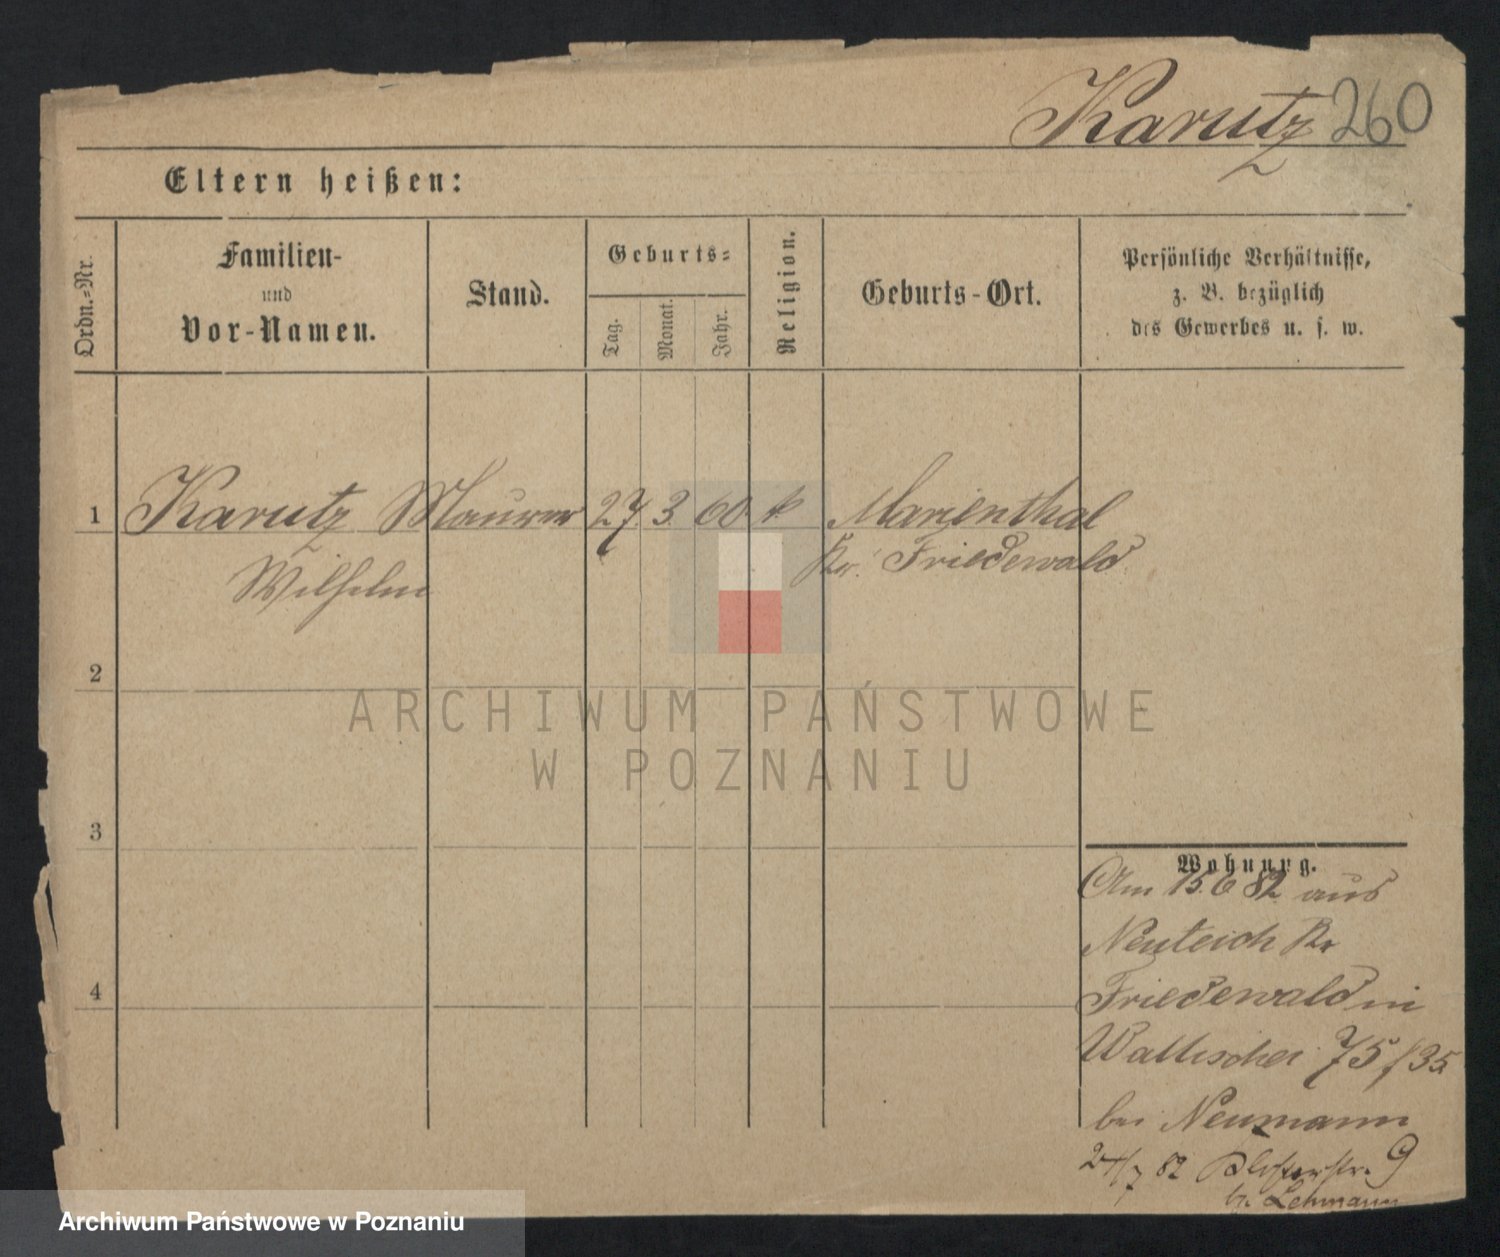 Karutz 260
Eltern heißen:
Ordn.-Nr.
Familien-
und
Vor-Namen.
Stand.
Geburts-
Tag.
Monat.
Jahr.
Religion.
Geburts-Ort.
Persönliche Verhältnisse,
z. B. bezüglich
des Gewerbes u. s. w.
1 Karutz Maurer 27 3. 60. k Marienthal
Wilhelm Kr. Friedewald
2
3
4
Wohnung.
Am 15.6 82 aus
Neuteich Kr
Friedewald in
Wallischei 75/35
bei Neumann
24/7 82 Klosterstr. 9
b. Lehmann
ARCHIWUM PAŃSTWOWE
W POZNANIU
Archiwum Państwowe w Poznaniu